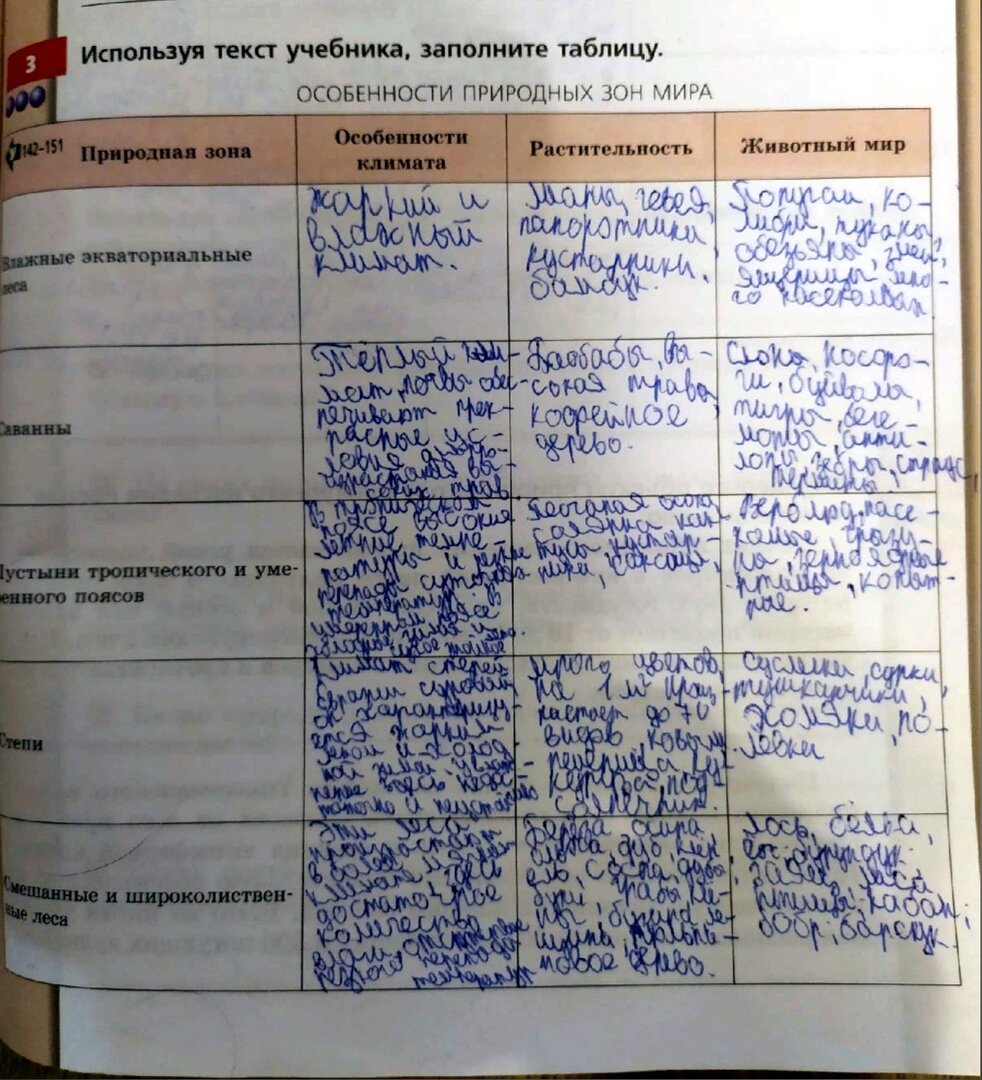 3
Используя текст учебника, заполните таблицу.
ОСОБЕННОСТИ ПРИРОДНЫХ ЗОН МИРА
142–151
Природная зона
Особенности
климата
Растительность
Животный мир
Влажные экваториальные
леса
Жаркий и
влажный
климат.
гевея,
папоротники
кустарники,
бамбук.
Попугаи, ко-
либри, туканы,
обезьяны, змеи,
ящерицы, мно-
го насекомых
Саванны
Тёплый кли-
мат, почвы обес-
печивают прек-
расные ус-
ловия для про-
израстания вы-
соких трав
Баобабы, вы-
сокая трава,
кофейное
дерево.
Слоны, носоро-
ги, буйволы,
тигры, беге-
моты, анти-
лопы, зебры, страус,
термиты.
Пустыни тропического и уме-
ренного поясов
В тропическом
поясе высокие
летние темпе-
ратуры и резкие
перепады суточных
температур. В
умеренном поясе
холодные зимой и
Песчаная осока
солянка, как-
тусы, кустар-
ники, саксаул,
Верблюд, насе-
комые, грызу-
ны, зерноядные
птицы, копыт-
ные.
Степи
Климат степей
Евразии суровый,
он характеризу-
ется жарким
летом и холод-
ной зимой. Увлаж-
нение здесь недос-
таточно и неустойчиво
Много цветов,
на 1 м² произ-
растает до 70
видов, ковыль,
подсолнечник.
Суслики, сурки,
тушканчики,
хомяки, по-
лёвки
Смешанные и широколиствен-
ные леса
Эти леса
произрастают
в более мягком
климате, здесь
достаточное
количество
влаги, отсутствие
резкого перепада
температур
Берёза, осина,
ольха, дуб, клён,
ель, сосна, дубы,
буки, грабы, ли-
пы,
тюльпа-
новое дерево.
Лось, белка,
ёж, бурундук,
заяц, лиса,
птицы, кабан,
бобр, барсук.